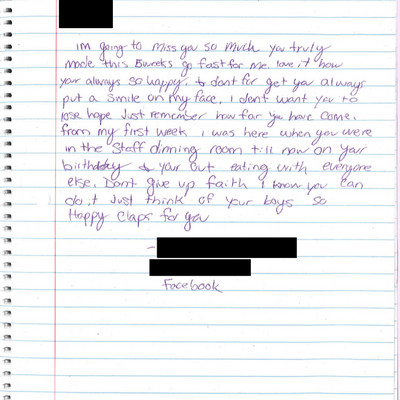 im going to miss ya so much you truly
made this 5weeks go fast for me. love it how
your always so happy. & dont for get you always
put a smile on my face. I don't want you to
lose hope Just remember how far you have come.
from my first week i was here when you were
in the staff dinning room till now on your
birthday & your out eating with everyone
else. Don't give up faith I know you can
do it Just think of your boys so
Happy Claps for you
-
Facebook